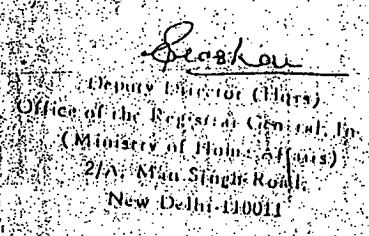 Deputy Director (Hqrs)
Office of the Registrar General, In
(Ministry of Home Affairs)
2/A, Man Singh Road,
New Delhi-110011